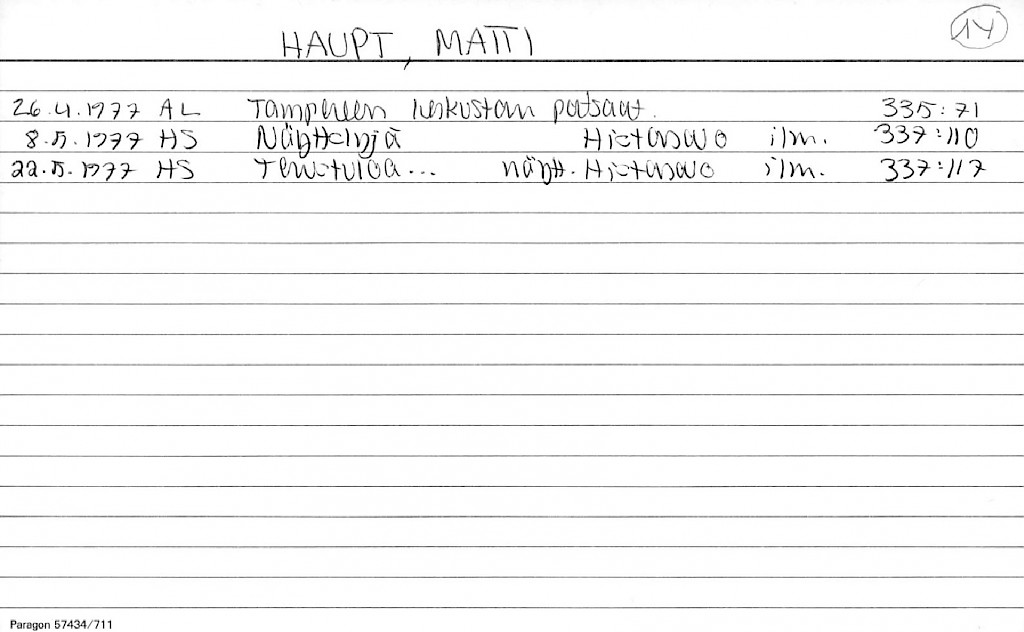 14
HAUPT, MATTI
26.4.1977 AL Tampereen keskustan patsaat. 335:71
8.5.1977 HS Näyttelyjä Hietasalo ilm. 337:110
22.5.1977 HS Tervetuloa... näytt. Hietasalo ilm. 337:117
Paragon 57434/711